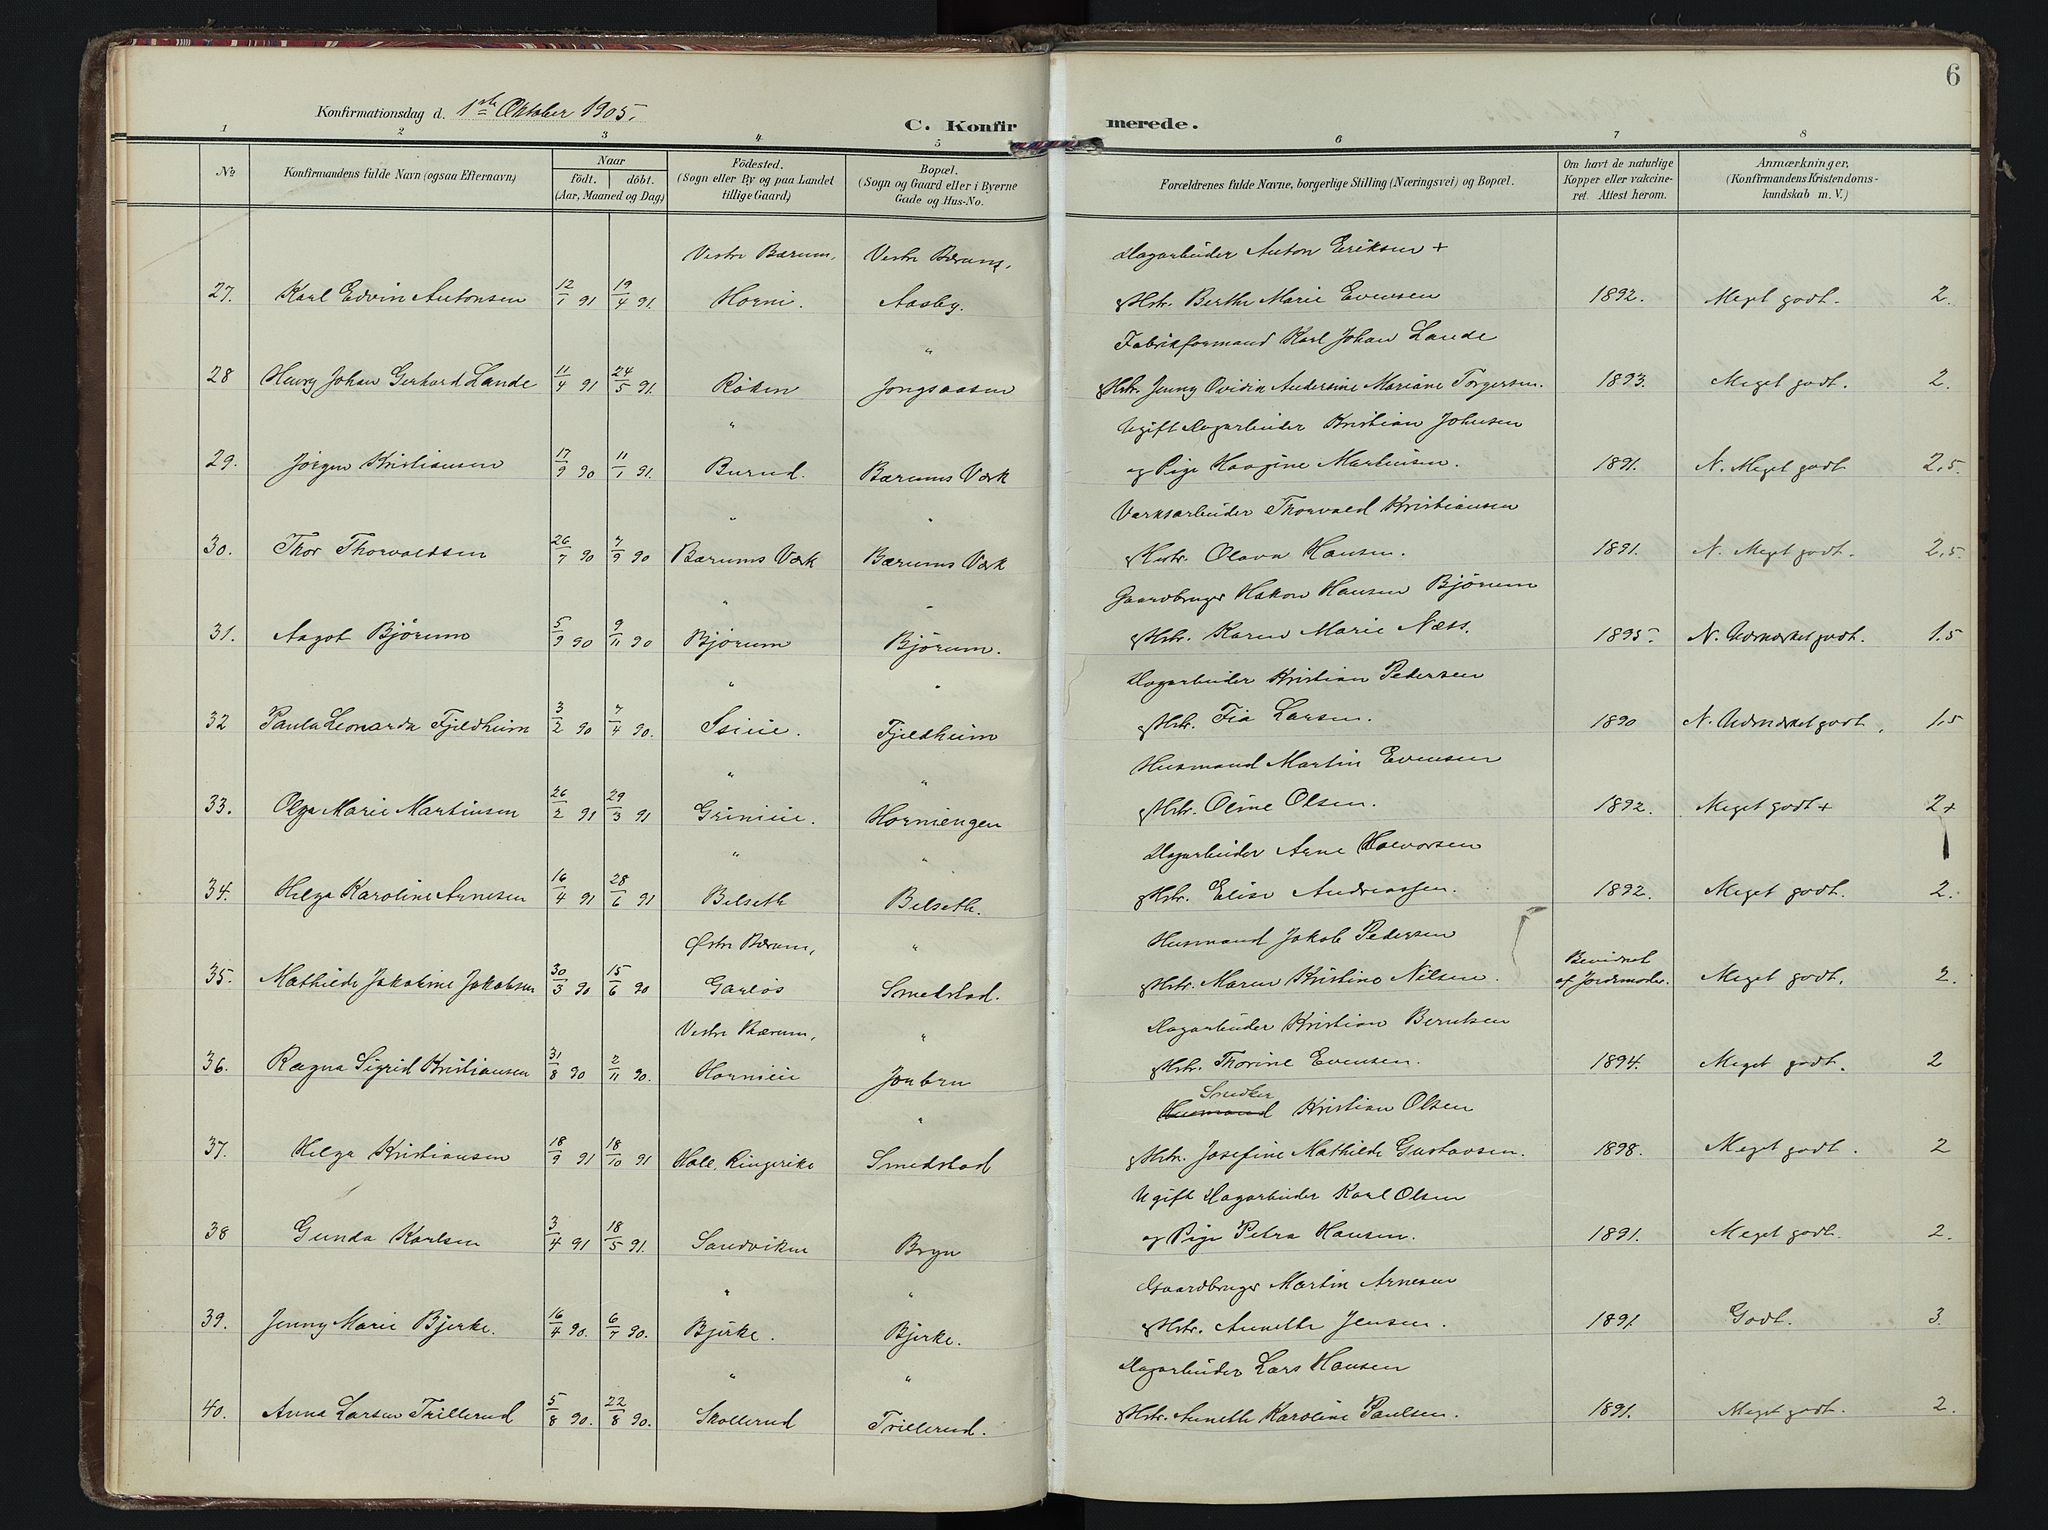 6
Konfirmationsdag d. 1ste Oktober 1905.
C. Konfirmerede.
1 2 3 4 5 6 7 8
No
Konfirmandens fulde Navn (ogsaa Efternavn)
Naar
födt. döbt.
(Aar, Maaned og Dag)
Födested.
(Sogn eller By og paa Landet
tillige Gaard)
Bopæl.
(Sogn og Gaard eller i Byerne
Gade og Hus-No.
Forældrenes fulde Navne, borgerlige Stilling (Næringsvei) og Bopæl.
Om havt de naturlige
Kopper eller vakcine-
ret. Attest herom.
Anmærkninger.
(Konfirmandens Kristendoms-
kundskab m. V.)
Vestre Bærum, Vestre Bærum, Dagarbeider Anton Eriksen +
27. Karl Edvin Antonsen 12/1 91 19/4 91. Horni. Aasby. & Hstr. Berthe Marie Evensen 1892. Meget godt. 2.
" Fabrikformand Karl Johan Lande
28 Henry Johan Gerhard Lande 11/4 91 24/5 91. Röken Jongsaasen & Hstr. Jenny Ovidia Andersine Mariane Torgersen. 1893. Meget godt. 2.
" Ugift Dagarbeider Kristian Johnsen
29. Jörgen Kristiansen 17/9 90 11/1 91. Burud. Bærums Værk og Pige Haagine Martinsen. 1891. N. Meget godt 2,5.
" " Værksarbeider Thorvald Kristiansen
30. Thor Thorvaldsen 26/7 90 7/9 90 Bærums Værk Bærums Værk & Hstr. Olava Hansen. 1891. N. Meget godt. 2,5.
" " Gaardbruger Hakon Hansen Björum
31. Aagot Björum 5/9 90 9/11 90 Björum Björum. & Hstr. Karen Marie Næss. 1895. N. Udmærket godt. 1.5
" " Dagarbeider Kristian Pedersen
32 Paula Leonarda Fjeldheim 3/2 90 7/4 90. Isieie. Fjeldheim & Hstr. Fia Larsen. 1890 N. Udmærket godt, 1,5
" " Husmand Martin Evensen
33. Olga Marie Martinsen 26/2 91 29/3 91 Grinieie. Horniengen & Hstr. Oline Olsen. 1892. Meget godt + 2+
" " Dagarbeider Arne Halvorsen
34. Helga Karoline Arnesen 16/4 91 28/6 91 Belseth Belseth. & Hstr. Elise Andreassen. 1892. Meget godt. 2.
Østre Bærum, " Husmand Jakob Pedersen
35. Mathilde Jakobine Jakobsen 30/3 90 15/6 90 Garlös Smedstad. & Hstr. Maren Kristine Nilsen. Bevidnet af Jordemoder. Meget godt. 2.
Vestre Bærum, " Dagarbeider Kristian Berntsen
36. Ragna Sigrid Kristiansen 31/8 90 2/11 90. Hornieie Jonbru & Hstr. Thorine Evensen. 1894. Meget godt. 2
" Snedker
Husmand Kristian Olsen
37. Helga Kristiansen 18/9 91 18/10 91 Hole, Ringerike Smedstad & Hstr. Josefine Mathilde Gustavsen. 1898. Meget godt. 2
Ugift Dagarbeider Karl Olsen
38 Gunda Karlsen 3/4 91 18/5 91. Sandviken Bryn og Pige Petra Hansen. 1891. Meget godt. 2.
" " Gaardbruger Martin Arnesen
39. Jenny Marie Bjerke. 16/4 90. 6/7 90. Bjerke. Bjerke. & Hstr. Annethe Jensen. 1891. Godt. 3.
" " Dagarbeider Lars Hansen
40. Anna Larsen Trillerud 5/8 90. 22/8 90. Skollerud Trillerud. & Hstr. Annethe Karoline Paulsen. 1891. Meget godt. 2.